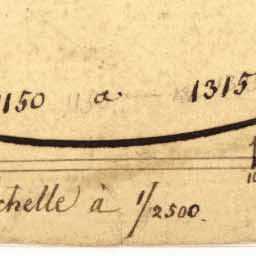 1150 a 1315
chelle à 1/2500.